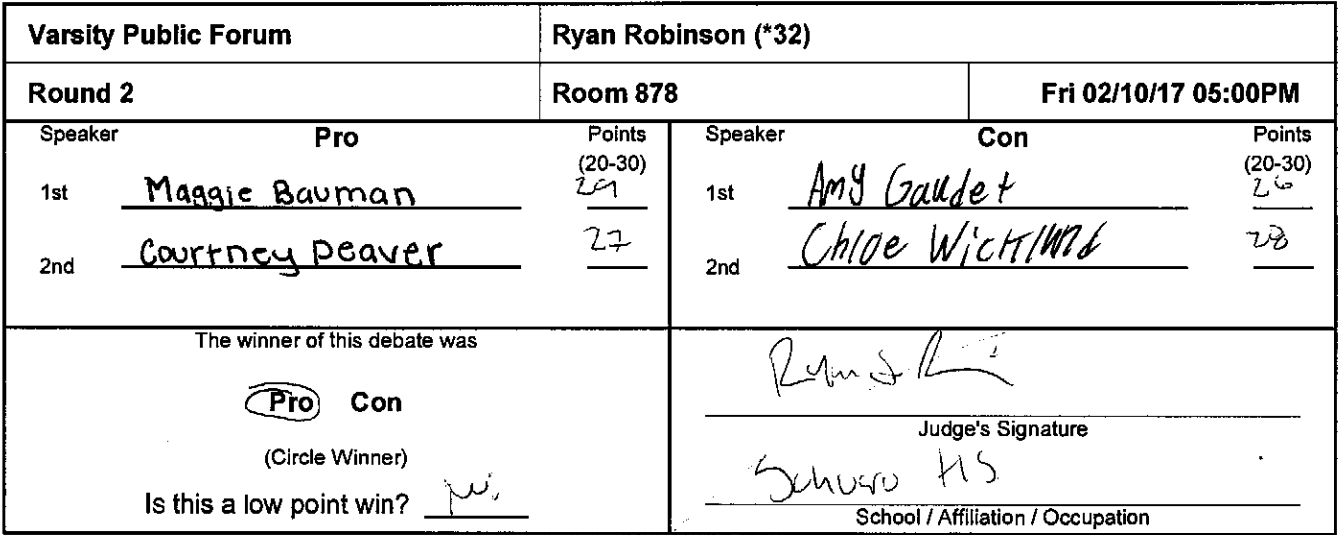 Varsity Public Forum Ryan Robinson (*32)
Round 2 Room 878 Fri 02/10/17 05:00PM
Speaker Pro Points (20-30)
1st Maggie Bauman 29
2nd Courtney Deaver 27
Speaker Con Points (20-30)
1st Amy Gaudet 26
2nd Chloe 28
The winner of this debate was
Pro Con
(Circle Winner)
Is this a low point win?
Judge's Signature
HS
School / Affiliation / Occupation